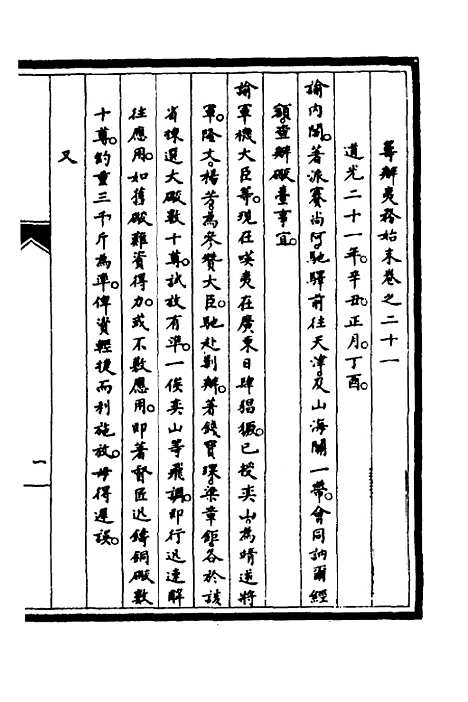 籌辦夷務始末卷之二十一
道光二十一年。辛丑。正月。丁酉。
諭內閣。著派賽尚阿。馳驛前往天津。及山海關一帶。會同訥爾經
額。查辦礮臺事宜。
諭軍機大臣等。現在暎夷在廣東日肆猖獗。已授奕山。為靖逆將
軍。隆文。楊芳。為參贊大臣。馳赴剿辦。著錢寶琛。梁章鉅。各於該
省揀選大礮數十尊。試放有準。一俟奕山等飛調。即行迅速解
往應用。如舊礮難資得力。或不敷應用。即著督匠迅鑄銅礮數
十尊。約重三千斤為準。俾資輕捷而利施放。毋得遲誤。
又
一